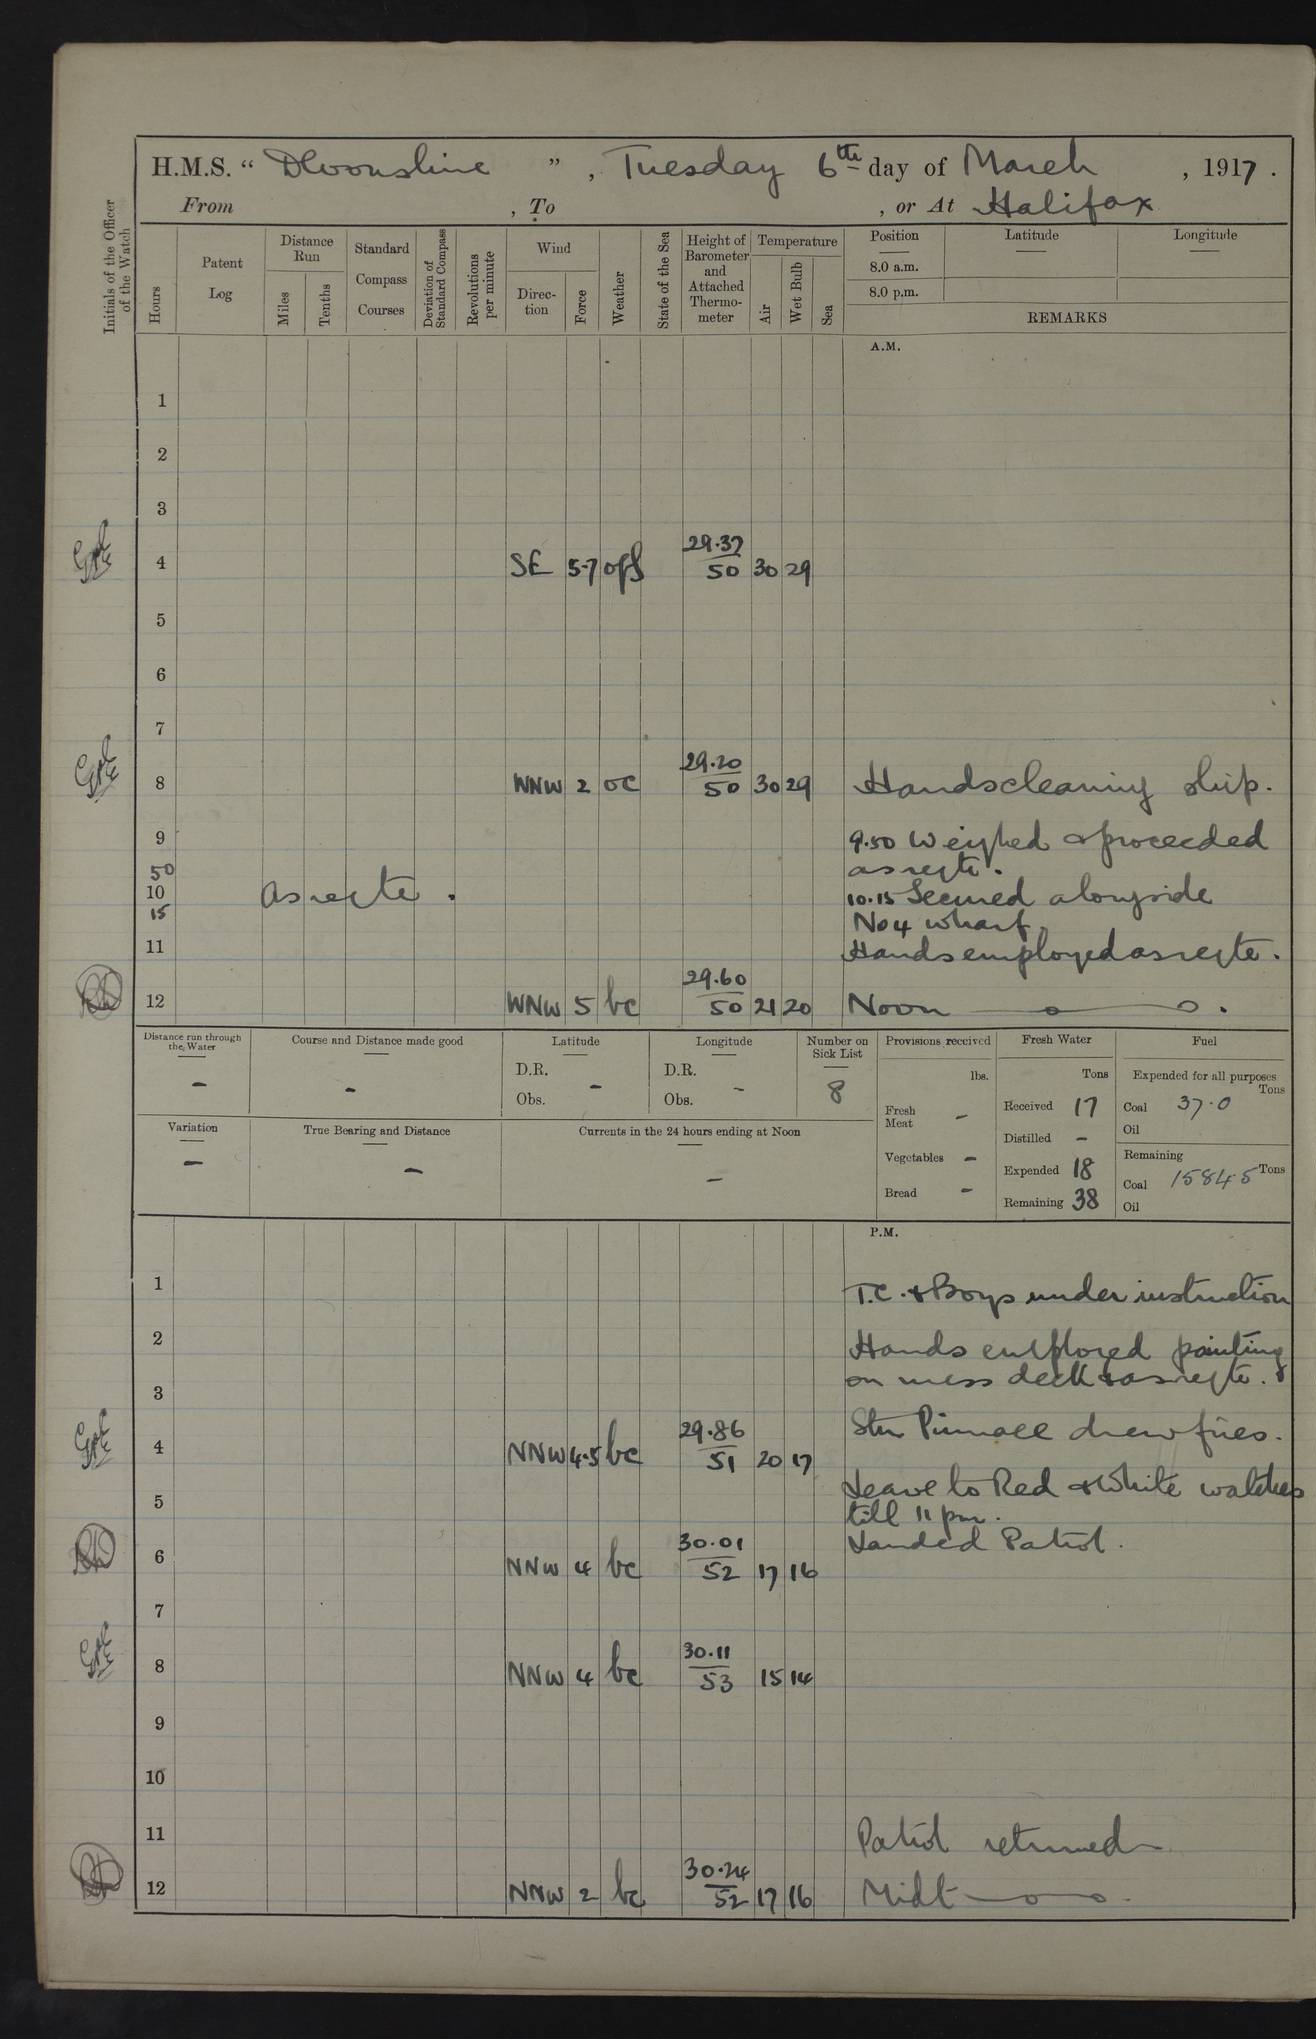 H.M.S. "Devonshire", Tuesday 6th day of March, 1917.
From , To , or At Halifax
Initials of the Officer of the Watch
Hours
Patent Log
Distance Run
Miles
Tenths
Standard Compass Courses
Deviation of Standard Compass
Revolutions per minute
Wind
Direc-tion
Force
Weather
State of the Sea
Height of Barometer and Attached Thermo-meter
Temperature
Air
Wet Bulb
Sea
Position
8.0 a.m.
8.0 p.m.
Latitude
Longitude
REMARKS
A.M.
1
2
3
4 SE 5-7 ops 29.37/50 30 29
5
6
7
8 WNW 2 oc 29.20/50 30 29 Hands cleaning ship.
9 9.50 Weighed & proceeded
50 as reqte.
10 as reqte. 10.15 Secured alongside
15 No 4 wharf.
11 Hands employed as reqte.
12 WNW 5 bc 29.60/50 21 20 Noon
Distance run through the Water
-
Course and Distance made good
-
Latitude
D.R. -
Obs.
Longitude
D.R. -
Obs.
Number on Sick List
8
Provisions received
lbs.
Fresh Meat -
Vegetables -
Bread -
Fresh Water
Tons
Received 17
Distilled -
Expended 18
Remaining 38
Fuel
Expended for all purposes
Tons
Coal 37.0
Oil
Remaining
Coal 1584.5 Tons
Oil
Variation
-
True Bearing and Distance
-
Currents in the 24 hours ending at Noon
-
P.M.
1 T.C. & Boys under instruction
2 Hands employed painting
on mess deck & as reqte.
3
4 NNW 4.5 bc 29.86/51 20 17 Stm Pinnace drew fires.
5 Leave to Red & White watches
till 11 pm.
6 NNW 4 bc 30.01/52 17 16 Landed Patrol.
7
8 NNW 4 bc 30.11/53 15 14
9
10
11 Patrol returned
12 NNW 2 bc 30.24/52 17 16 Midt